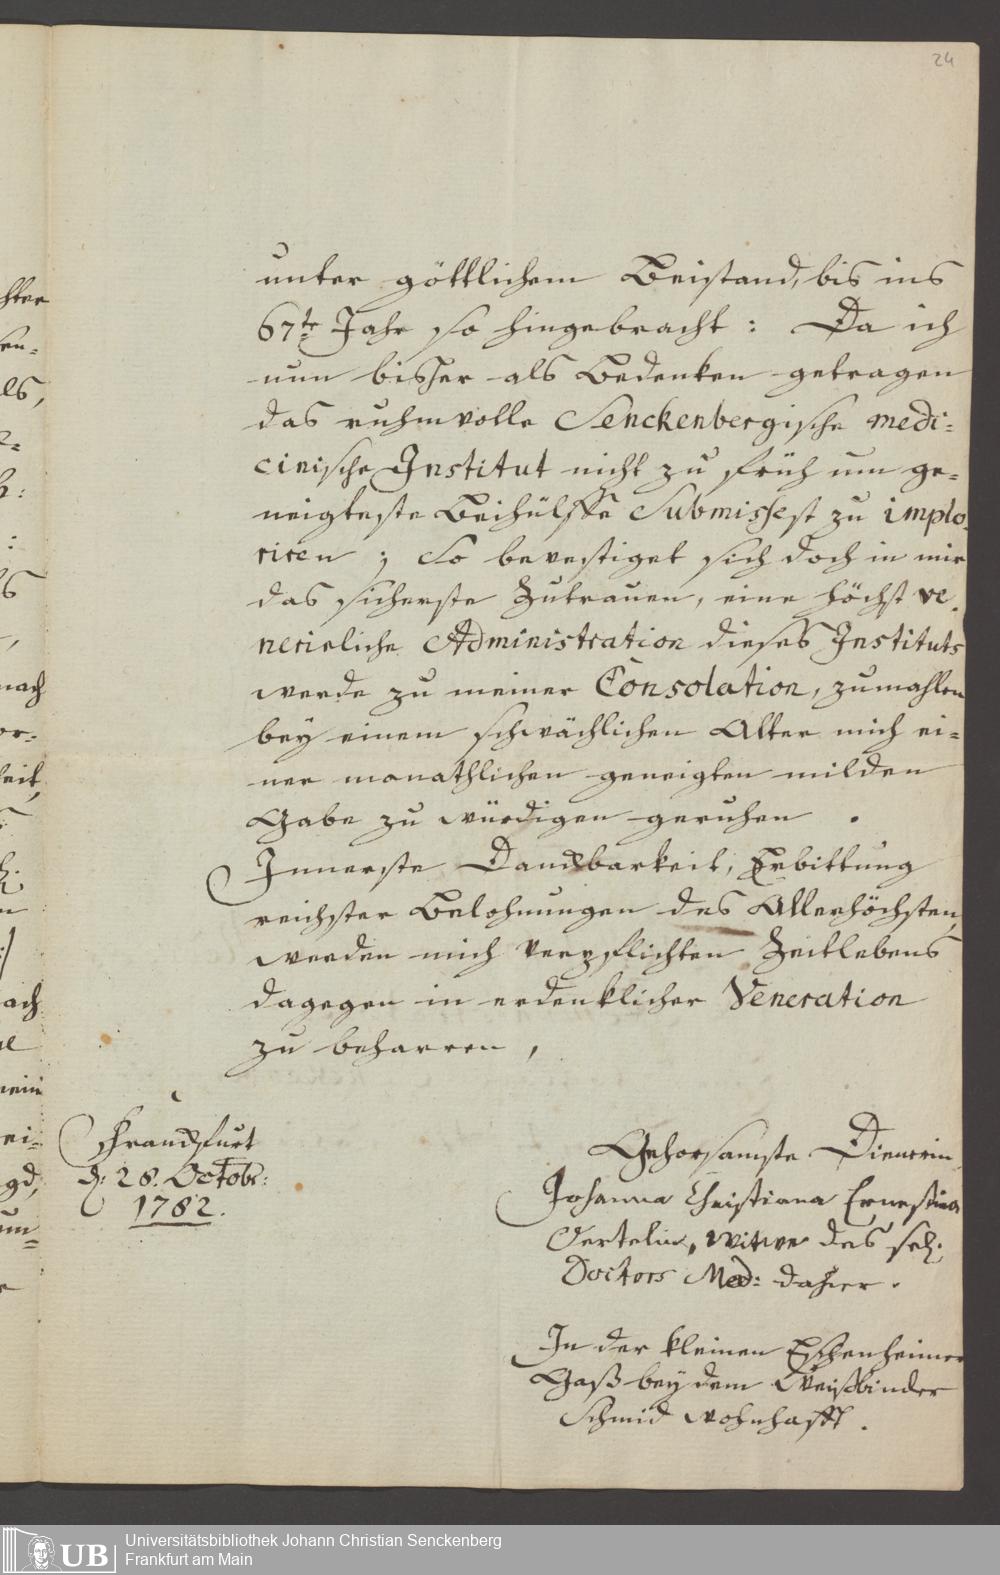 24
unter göttlichem Beistand, bis ins
67te Jahr so hingebracht: Da ich
nun bisher als Bedenken getragen
das ruhmvolle Senckenbergische medi-
cinische Institut nicht zu früh um ge-
neigteste Beihülffe Submissest zu implo-
riren; So bevestiget sich doch in mir
das sicherste Zutrauen, eine höchst ve-
nerirliche Administration dieses Instituts
werde zu meiner Consolation, zumahlen
bey einem schwächlichen Alter mich ei-
ner monathlichen geneigten milden
Gabe zu würdigen geruhen.
Innerste Danckbarkeit, Erbittung
reichster Belohnungen des Allerhöchsten,
werden mich verpflichten Zeitlebens
dagegen in erdenklicher Veneration
zu beharren,
Franckfurt
d. 28. Octobr:
1782.
Gehorsamste Dienerin
Johanna Christiana Ernestina
Oertelin, Witwe des sel:
Doctors Med: dahier.
In der kleinen Eschenheimer
Gaß bey dem Weißbinder
Schmid wohnhafft.
UB
Universitätsbibliothek Johann Christian Senckenberg
Frankfurt am Main